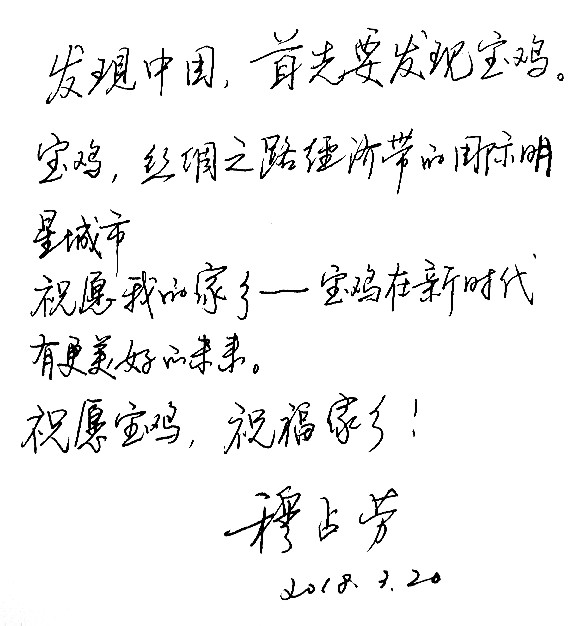 发现中国，首先要发现宝鸡。
宝鸡，丝绸之路经济带的国际明
星城市
祝愿我的家乡——宝鸡在新时代
有更美好的未来。
祝愿宝鸡，祝福家乡！
穆占劳
2018.3.20